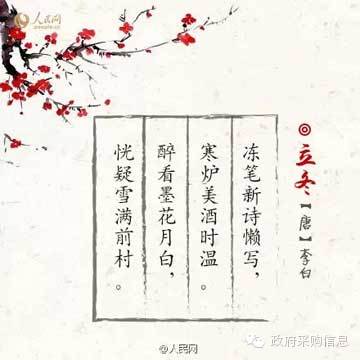 人民网
people.cn
立冬【唐】李白
冻笔新诗懒写，
寒炉美酒时温。
醉看墨花月白，
恍疑雪满前村。
@人民网
政府采购信息